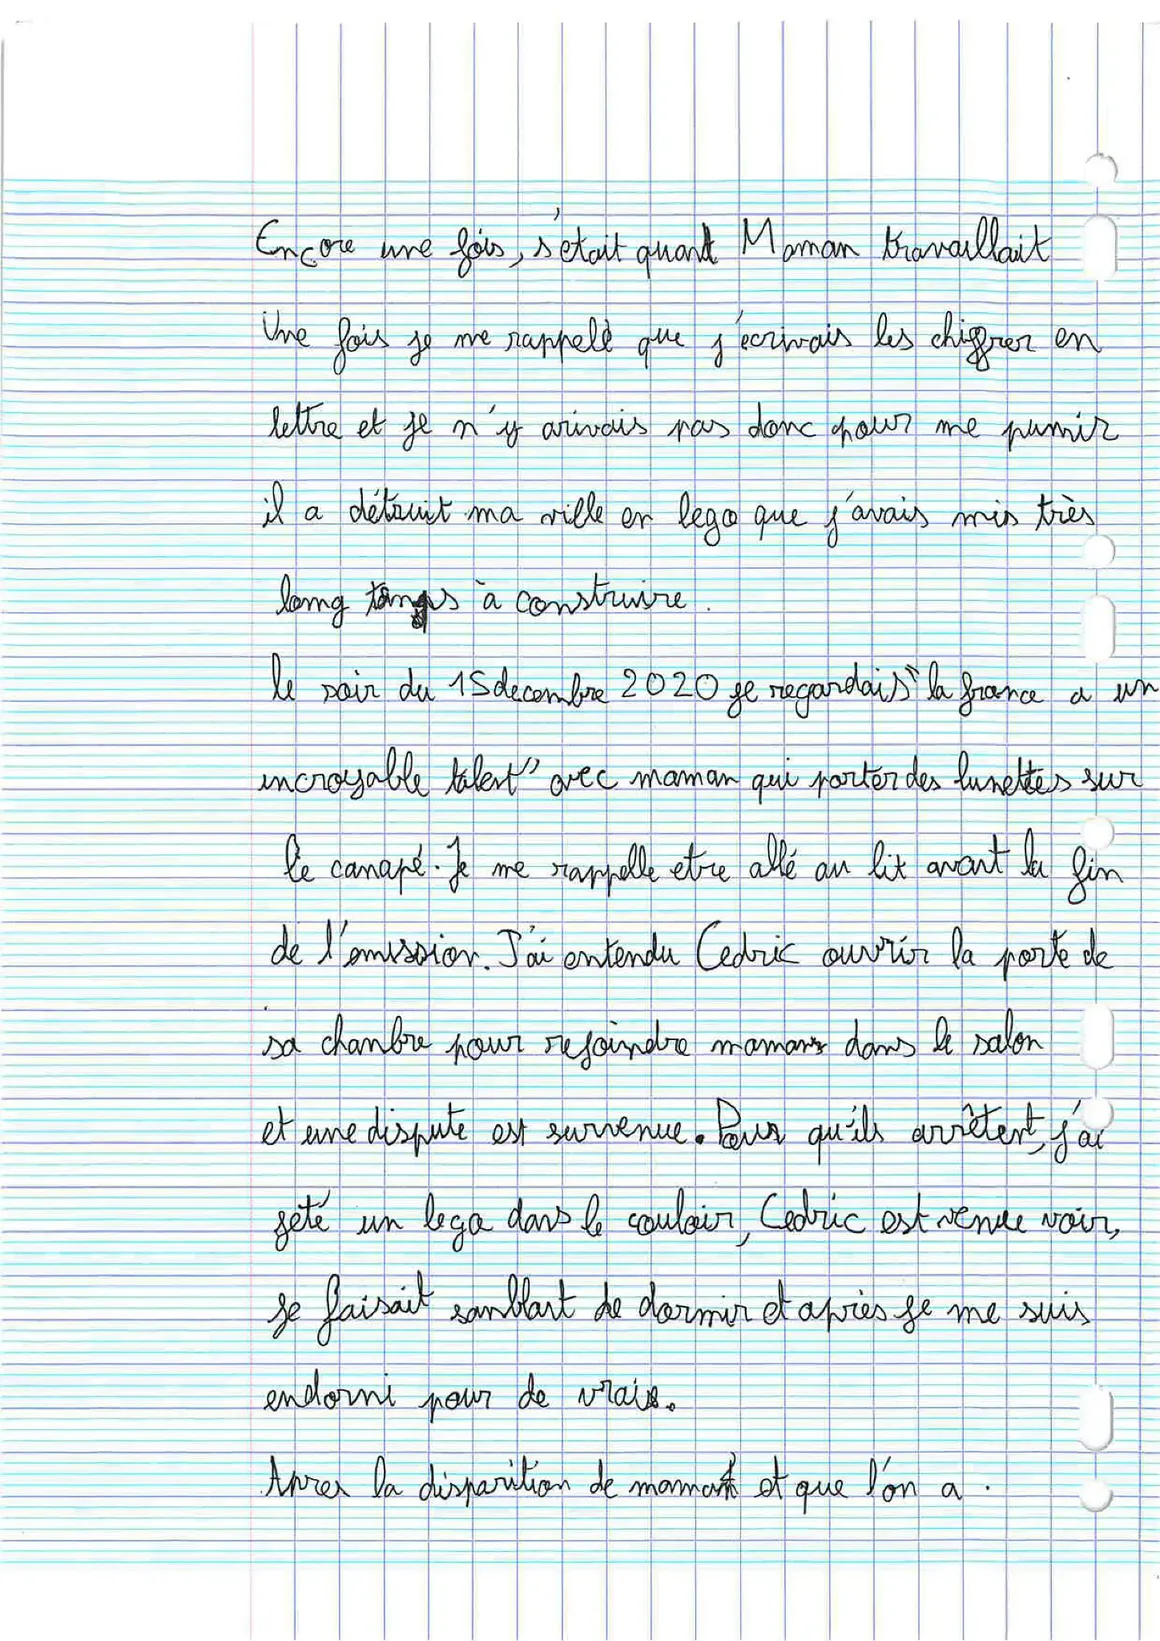 Encore une fois, s'était quand Maman travaillait
Une fois je me rappelè que j'écrivais les chiffrer en
lettre et je n'y arivais pas donc pour me punir
il a détruit ma ville en lego que j'avais mis très
long temps à construire.
le soir du 15 decembre 2020 je regardais "la france a un
incroyable talent" avec maman qui porter des lunettes sur
le canapé. Je me rappelle etre allé au lit avant la fin
de l'émission. J'ai entendu Cedric ouvrir la porte de
sa chanbre pour rejoindre maman dans le salon
et une dispute est survenue. Pour qu'ils arrêtent, j'ai
jeté un lego dans le couloir, Cedric est venue voir,
je faisait samblant de dormir et après je me suis
endormi pour de vrais.
Apres la disparition de maman et que l'on a.